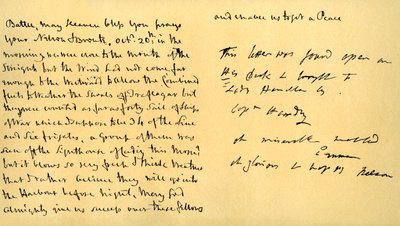 Battle, may Heaven bless you prays
your Nelson & Bronte, Octr. 20th in the
morning we were close to the mouth of the
Streights but the Wind had not come far
enough to the Westward to allow the Combined
fleets to Weather the Shoals of Traflagar but
they were counted as far as forty Sail of Ships
of War which I suppose to be 34 of the Line
and Six frigates, a Group of them was
seen off the Lighthouse of Cadiz this Morng
but it blows so very fresh I think Weather
that I rather believe they will go into
the Harbour before night, May God
Almighty give us success over these fellows
and enable us to get a Peace
This letter was found open on
His Desk & brought to
Lady Hamilton by
Captn Hardy
oh miserable wretched
Emma
oh glorious & happy Nelson